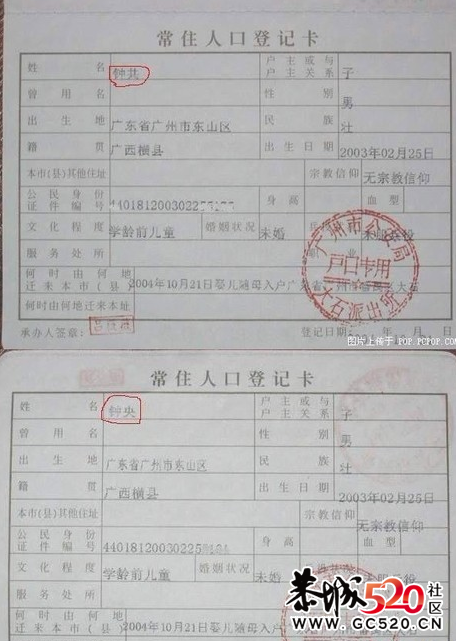 常住人口登记卡
姓名 钟共 户主或与户主关系 子
曾用名 性别 男
出生地 广东省广州市东山区 民族 壮
籍贯 广西横县 出生日期 2003年02月25日
本市(县)其他住址 宗教信仰 无宗教信仰
公民身份证件编号 440181200302 身高 血型
文化程度 学龄前儿童 婚姻状况 未婚
服务处所
何时由何地迁来本市(县) 2004年10月21日婴儿随母入户广东省广州市番禺区大石
何时由何地迁来本址
承办人签章: 登记日期: 年 月 日
广州市公安局
户口专用
大石派出所
图片上传于 POP.PCPOP.COM
常住人口登记卡
姓名 钟央 户主或与户主关系 子
曾用名 性别 男
出生地 广东省广州市东山区 民族 壮
籍贯 广西横县 出生日期 2003年02月25日
本市(县)其他住址 宗教信仰 无宗教信仰
公民身份证件编号 44018120030225 身高 血型
文化程度 学龄前儿童 婚姻状况 未婚
服务处所
何时由何地迁来本市(县) 2004年10月21日婴儿随母入户
恭城520社区
www.GC520.CN